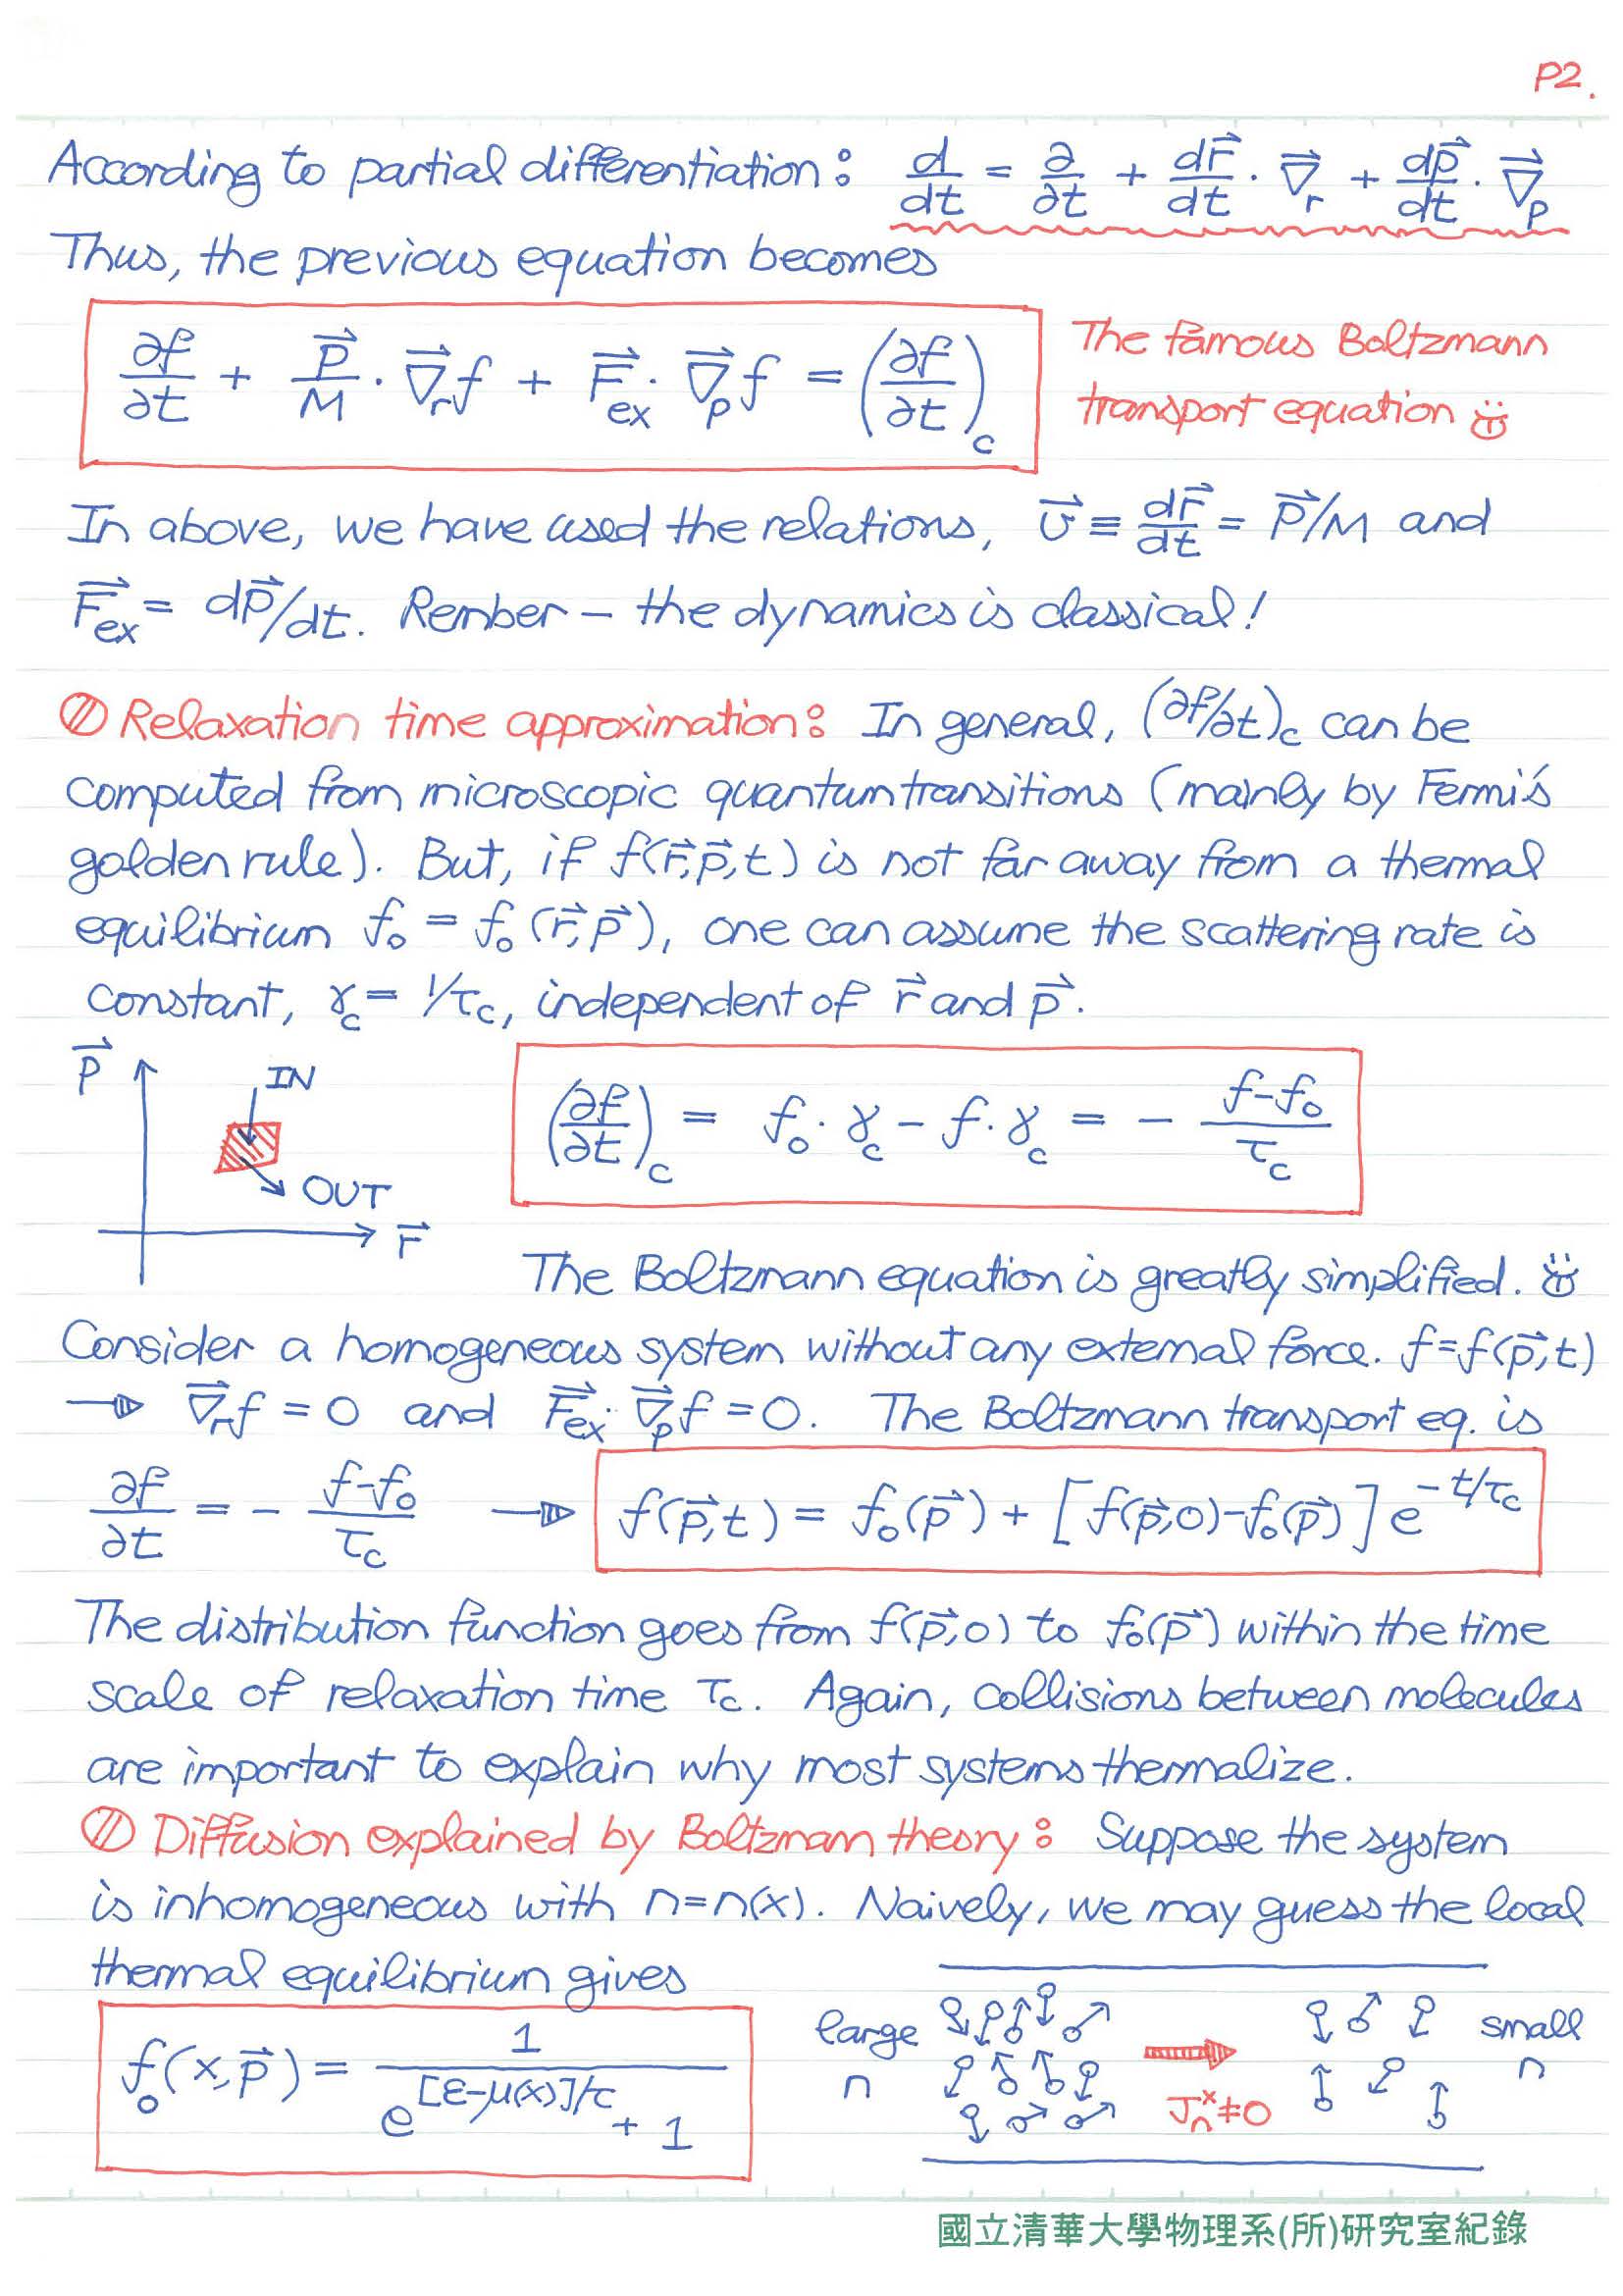 P2.
According to partial differentiation: d/dt = ∂/∂t + dr⃗/dt · ∇⃗_r + dp⃗/dt · ∇⃗_p
Thus, the previous equation becomes
∂f/∂t + p⃗/M · ∇⃗_r f + F⃗_ex · ∇⃗_p f = (∂f/∂t)_c
The famous Boltzmann
transport equation
In above, we have used the relations, v⃗ ≡ dr⃗/dt = p⃗/M and
F⃗_ex = dp⃗/dt. Rember – the dynamics is classical!
Relaxation time approximation: In general, (∂f/∂t)_c can be
computed from microscopic quantum transitions (mainly by Fermi's
golden rule). But, if f(r⃗,p⃗,t) is not far away from a thermal
equilibrium f₀ = f₀(r⃗,p⃗), one can assume the scattering rate is
constant, γ_c = 1/τ_c, independent of r⃗ and p⃗.
p⃗
IN
OUT
r⃗
(∂f/∂t)_c = f₀·γ_c – f·γ_c = – (f–f₀)/τ_c
The Boltzmann equation is greatly simplified.
Consider a homogeneous system without any external force. f=f(p⃗,t)
→ ∇⃗_r f = 0 and F⃗_ex · ∇⃗_p f = 0. The Boltzmann transport eq. is
∂f/∂t = – (f–f₀)/τ_c → f(p⃗,t) = f₀(p⃗) + [f(p⃗,0)–f₀(p⃗)] e^(–t/τ_c)
The distribution function goes from f(p⃗,0) to f₀(p⃗) within the time
scale of relaxation time τ_c. Again, collisions between molecules
are important to explain why most systems thermalize.
Diffusion explained by Boltzmann theory: Suppose the system
is inhomogeneous with n=n(x). Naively, we may guess the local
thermal equilibrium gives
f₀(x,p⃗) = 1/(e^([ε–μ(x)]/τ) + 1)
large
n
J_n^x ≠ 0
small
n
國立清華大學物理系(所)研究室紀錄